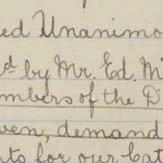 ed Unanimo
d by Mr. Ed. M
mbers of the D
ven, demand
ts for our